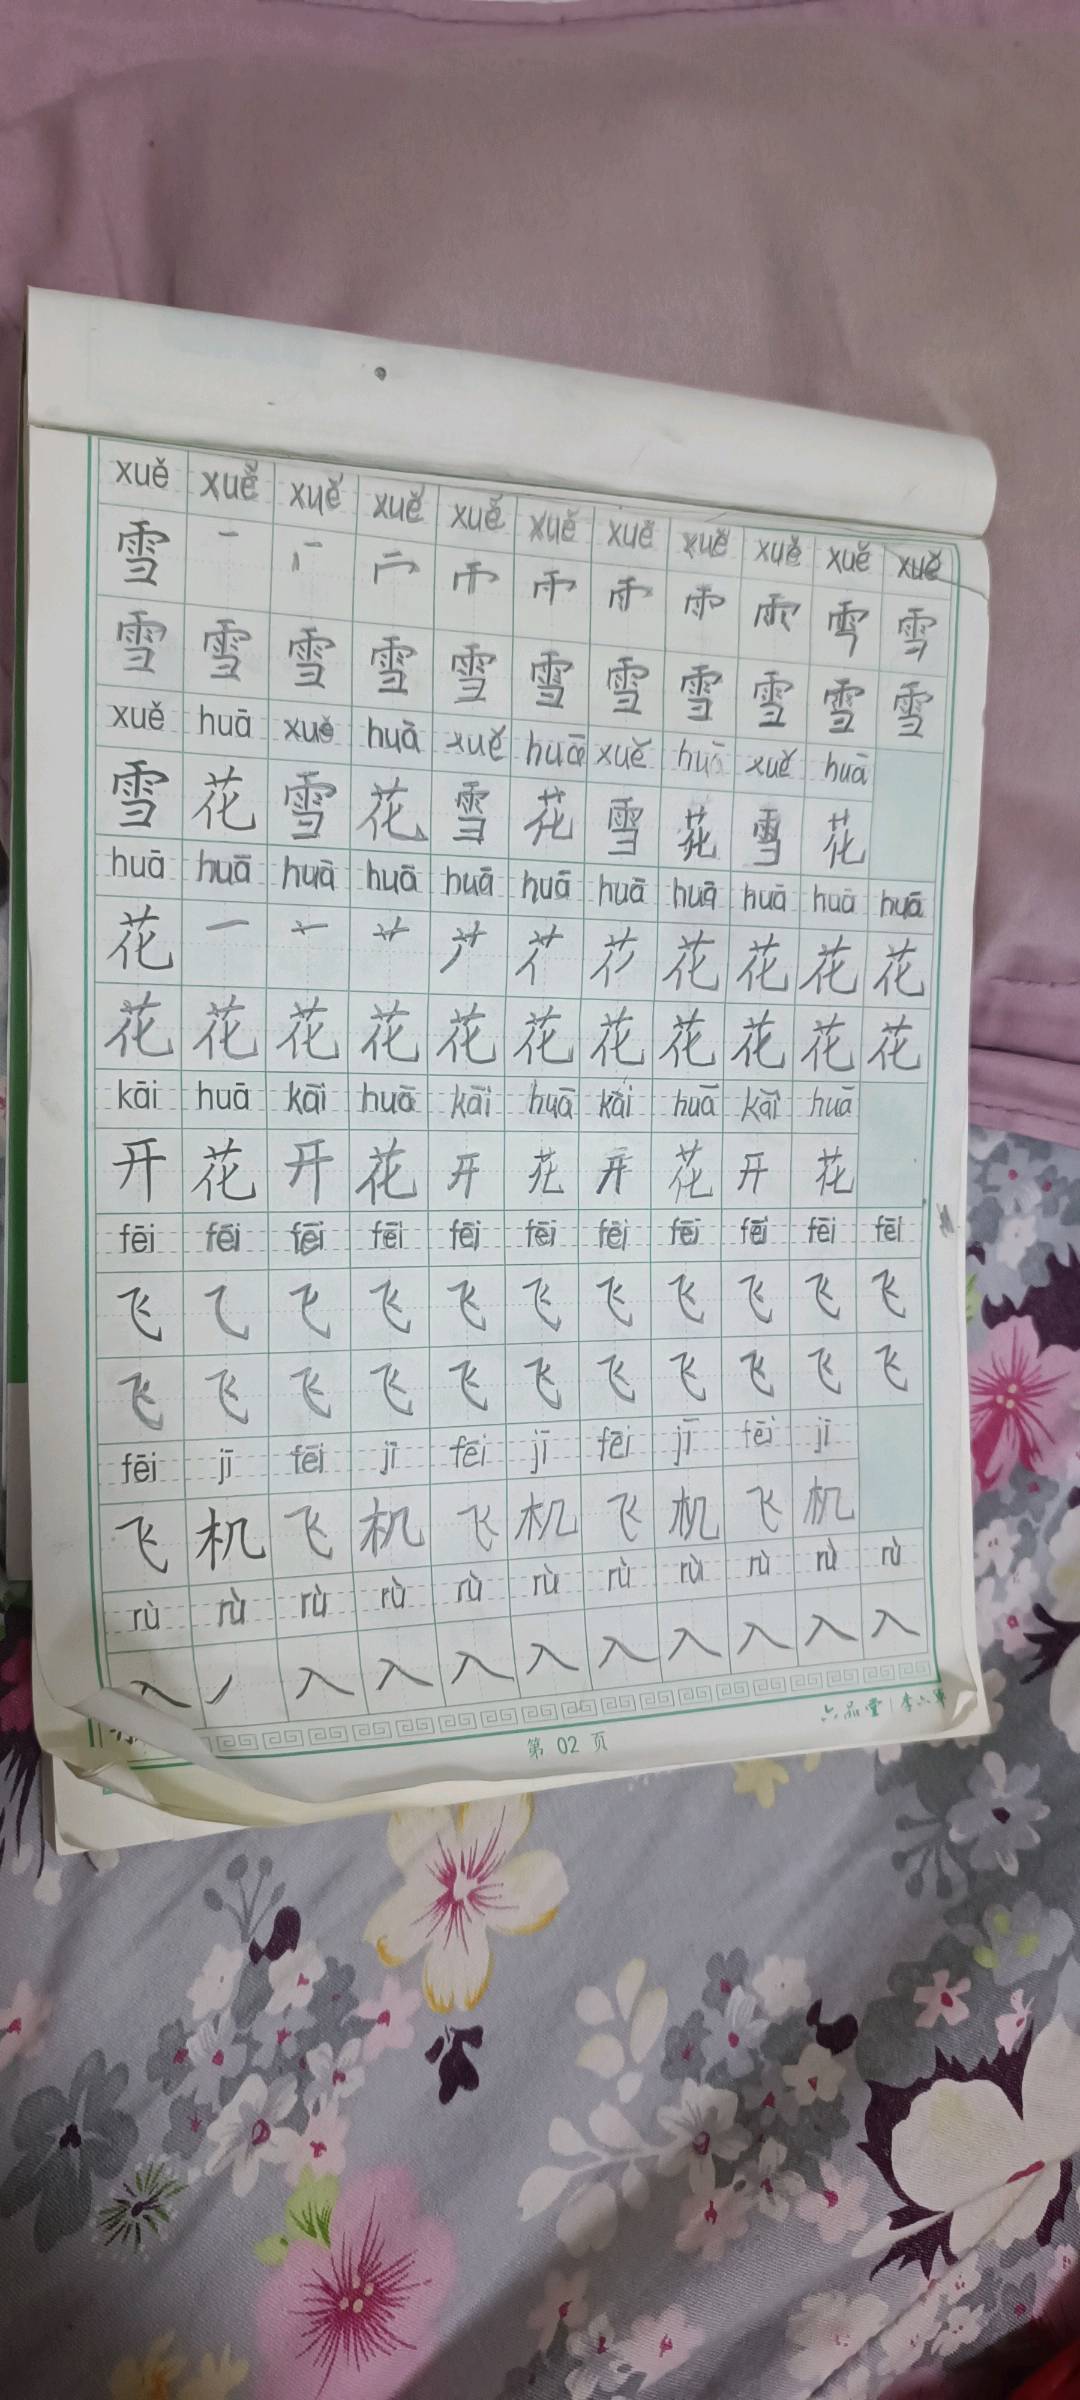 xuě xuě xuě xuě xuě xuě xuě xuě xuě xuě xuě
雪 雪
雪 雪 雪 雪 雪 雪 雪 雪 雪 雪 雪
xuě huā xuě huā xuě huā xuě huā xuě huā
雪 花 雪 花 雪 花 雪 花 雪 花
huā huā huā huā huā huā huā huā huā huā huā
花 一 花 花 花 花
花 花 花 花 花 花 花 花 花 花 花
kāi huā kāi huā kāi huā kāi huā kāi huā
开 花 开 花 开 花 开 花 开 花
fēi fēi fēi fēi fēi fēi fēi fēi fēi fēi fēi
飞 乁 飞 飞 飞 飞 飞 飞 飞 飞
飞 飞 飞 飞 飞 飞 飞 飞 飞 飞 飞
fēi jī fēi jī fēi jī fēi jī fēi jī
飞 机 飞 机 飞 机 飞 机 飞 机
rù rù rù rù rù rù rù rù rù rù rù
入 丿 入 入 入 入 入 入 入 入 入
六品堂 | 李六军
第 02 页